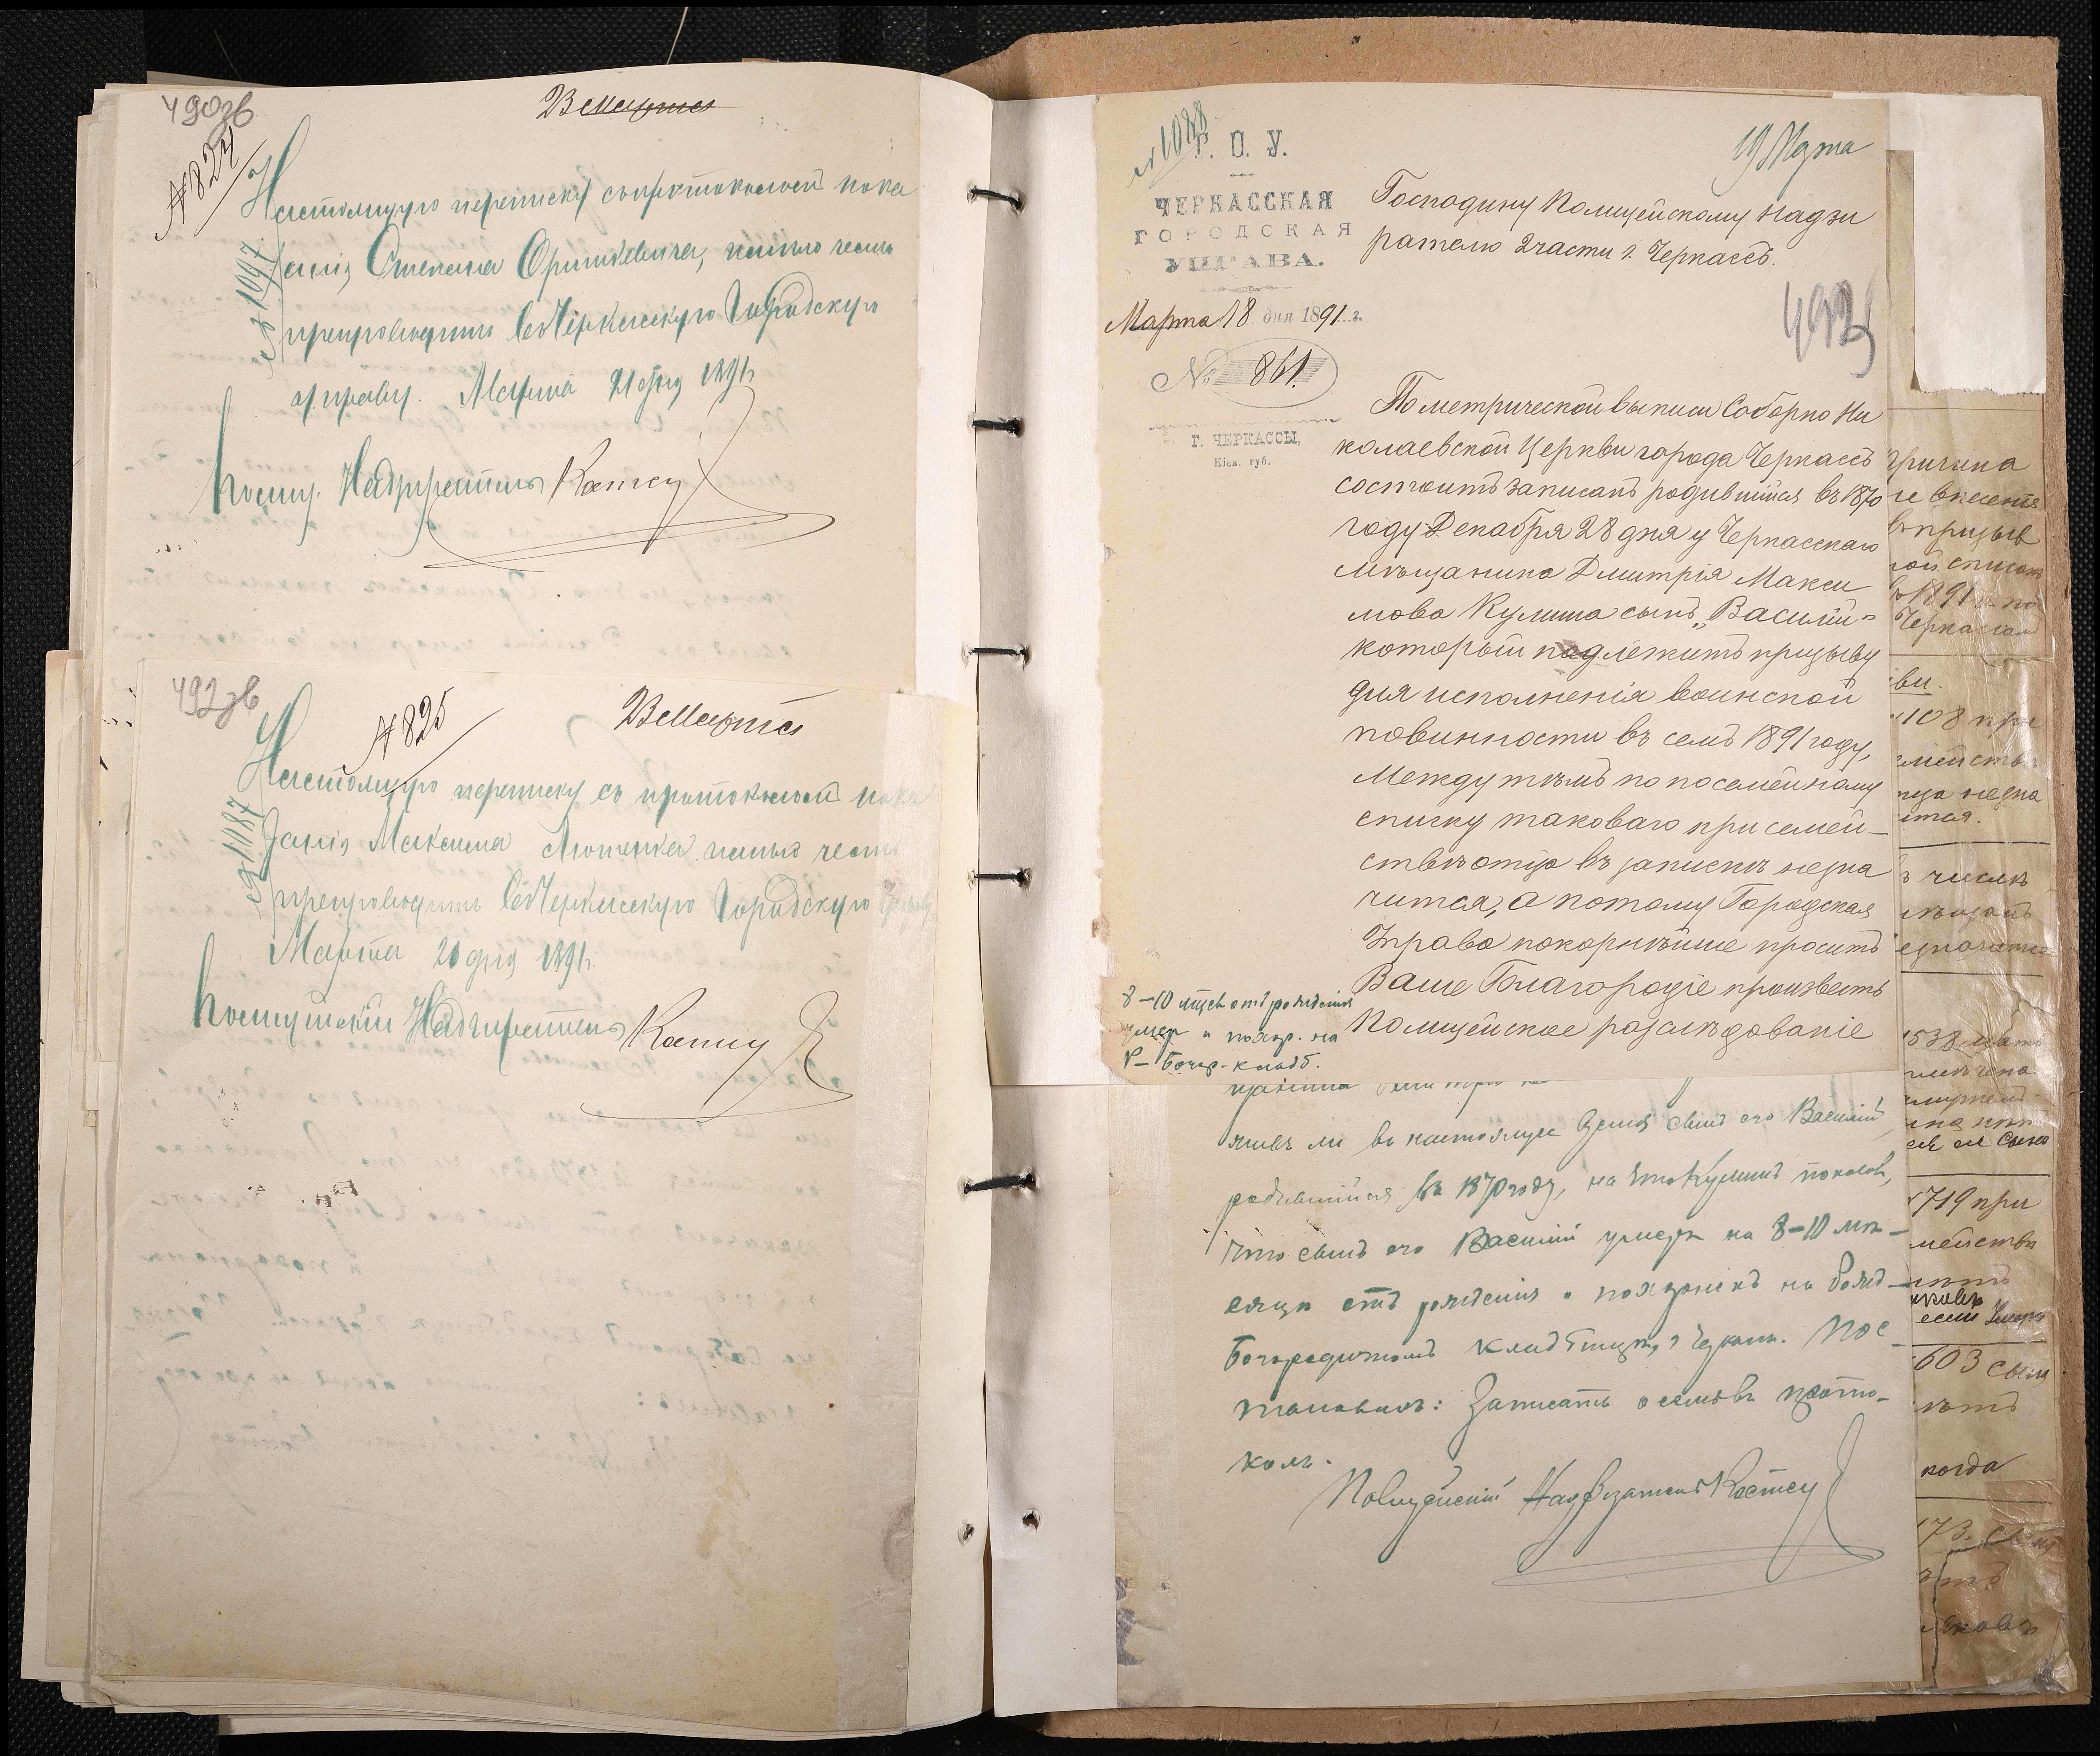 490зв
В Марта
№ 824
№ 1097
Настоящую переписку съ протоколомъ пока
занія Степана, имѣю честь
препроводить въ Черкасскую Городскую
управу. Марта 21 дня 1891 г.
Полиц. Надзиратель
492зв
№ 825
В Марта
№ 1087
Настоящую переписку съ протоколомъ пока
занія Максима имѣю честь
препроводить въ Черкасскую Городскую Управу
Марта 20 дня 1891 г.
Полицейскій Надзиратель
№ 1088
Г. О. У.
ЧЕРКАССКАЯ
ГОРОДСКАЯ
УПРАВА.
Марта 18 дня 1891 г.
№ 861.
Г. ЧЕРКАССЫ,
Кіев. губ.
19 Марта
Господину Полицейскому Надзи
рателю 2 части г. Черкассъ.
493
По метрической выписи Соборно Ни
колаевской Церкви города Черкассъ
состоитъ записанъ родившійся въ 1870
году Декабря 28 дня у Черкасскаго
мѣщанина Дмитрія Макси
мова Кулиша сынъ „Василій"
который подлежитъ призыву
для исполненія воинской
повинности въ семъ 1891 году,
Между тѣмъ по посемейному
списку таковаго при семей-
ствѣ отца въ записяхъ не зна
чится, а потому Городская
Управа покорнѣйше проситъ
Ваше Благородіе произвесть
Полицейское разслѣдованіе
8-10 мѣсв отъ рожденія
умер и похор. на
Р-Богор-кладб.
живъ ли въ настоящее время сынъ его Василій,
родившійся въ 1870 году, на что Кулишъ показалъ,
что сынъ его Василій умеръ на 8-10 мѣ-
сяцѣ отъ рожденія и похороненъ на Рожд-
Богородичномъ кладбищѣ, г Черкассъ. Пос-
тановилъ: Записать о семъ въ прото-
колъ.
Полицейскій Надзиратель
Причина
не внесенія
въ призыв
ной списокъ
въ 1891 г. по
108 при
719 при
603 сынъ
когда